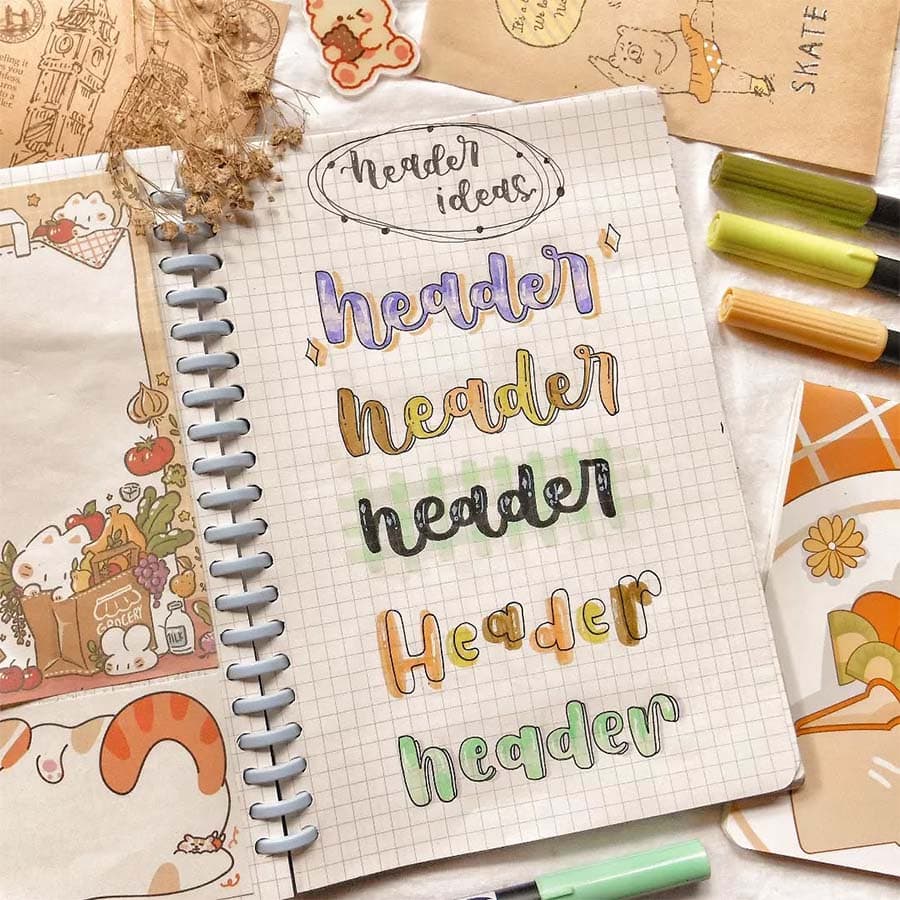 header
ideas
header
header
header
Header
header
SKATE
GROCERY
MILK